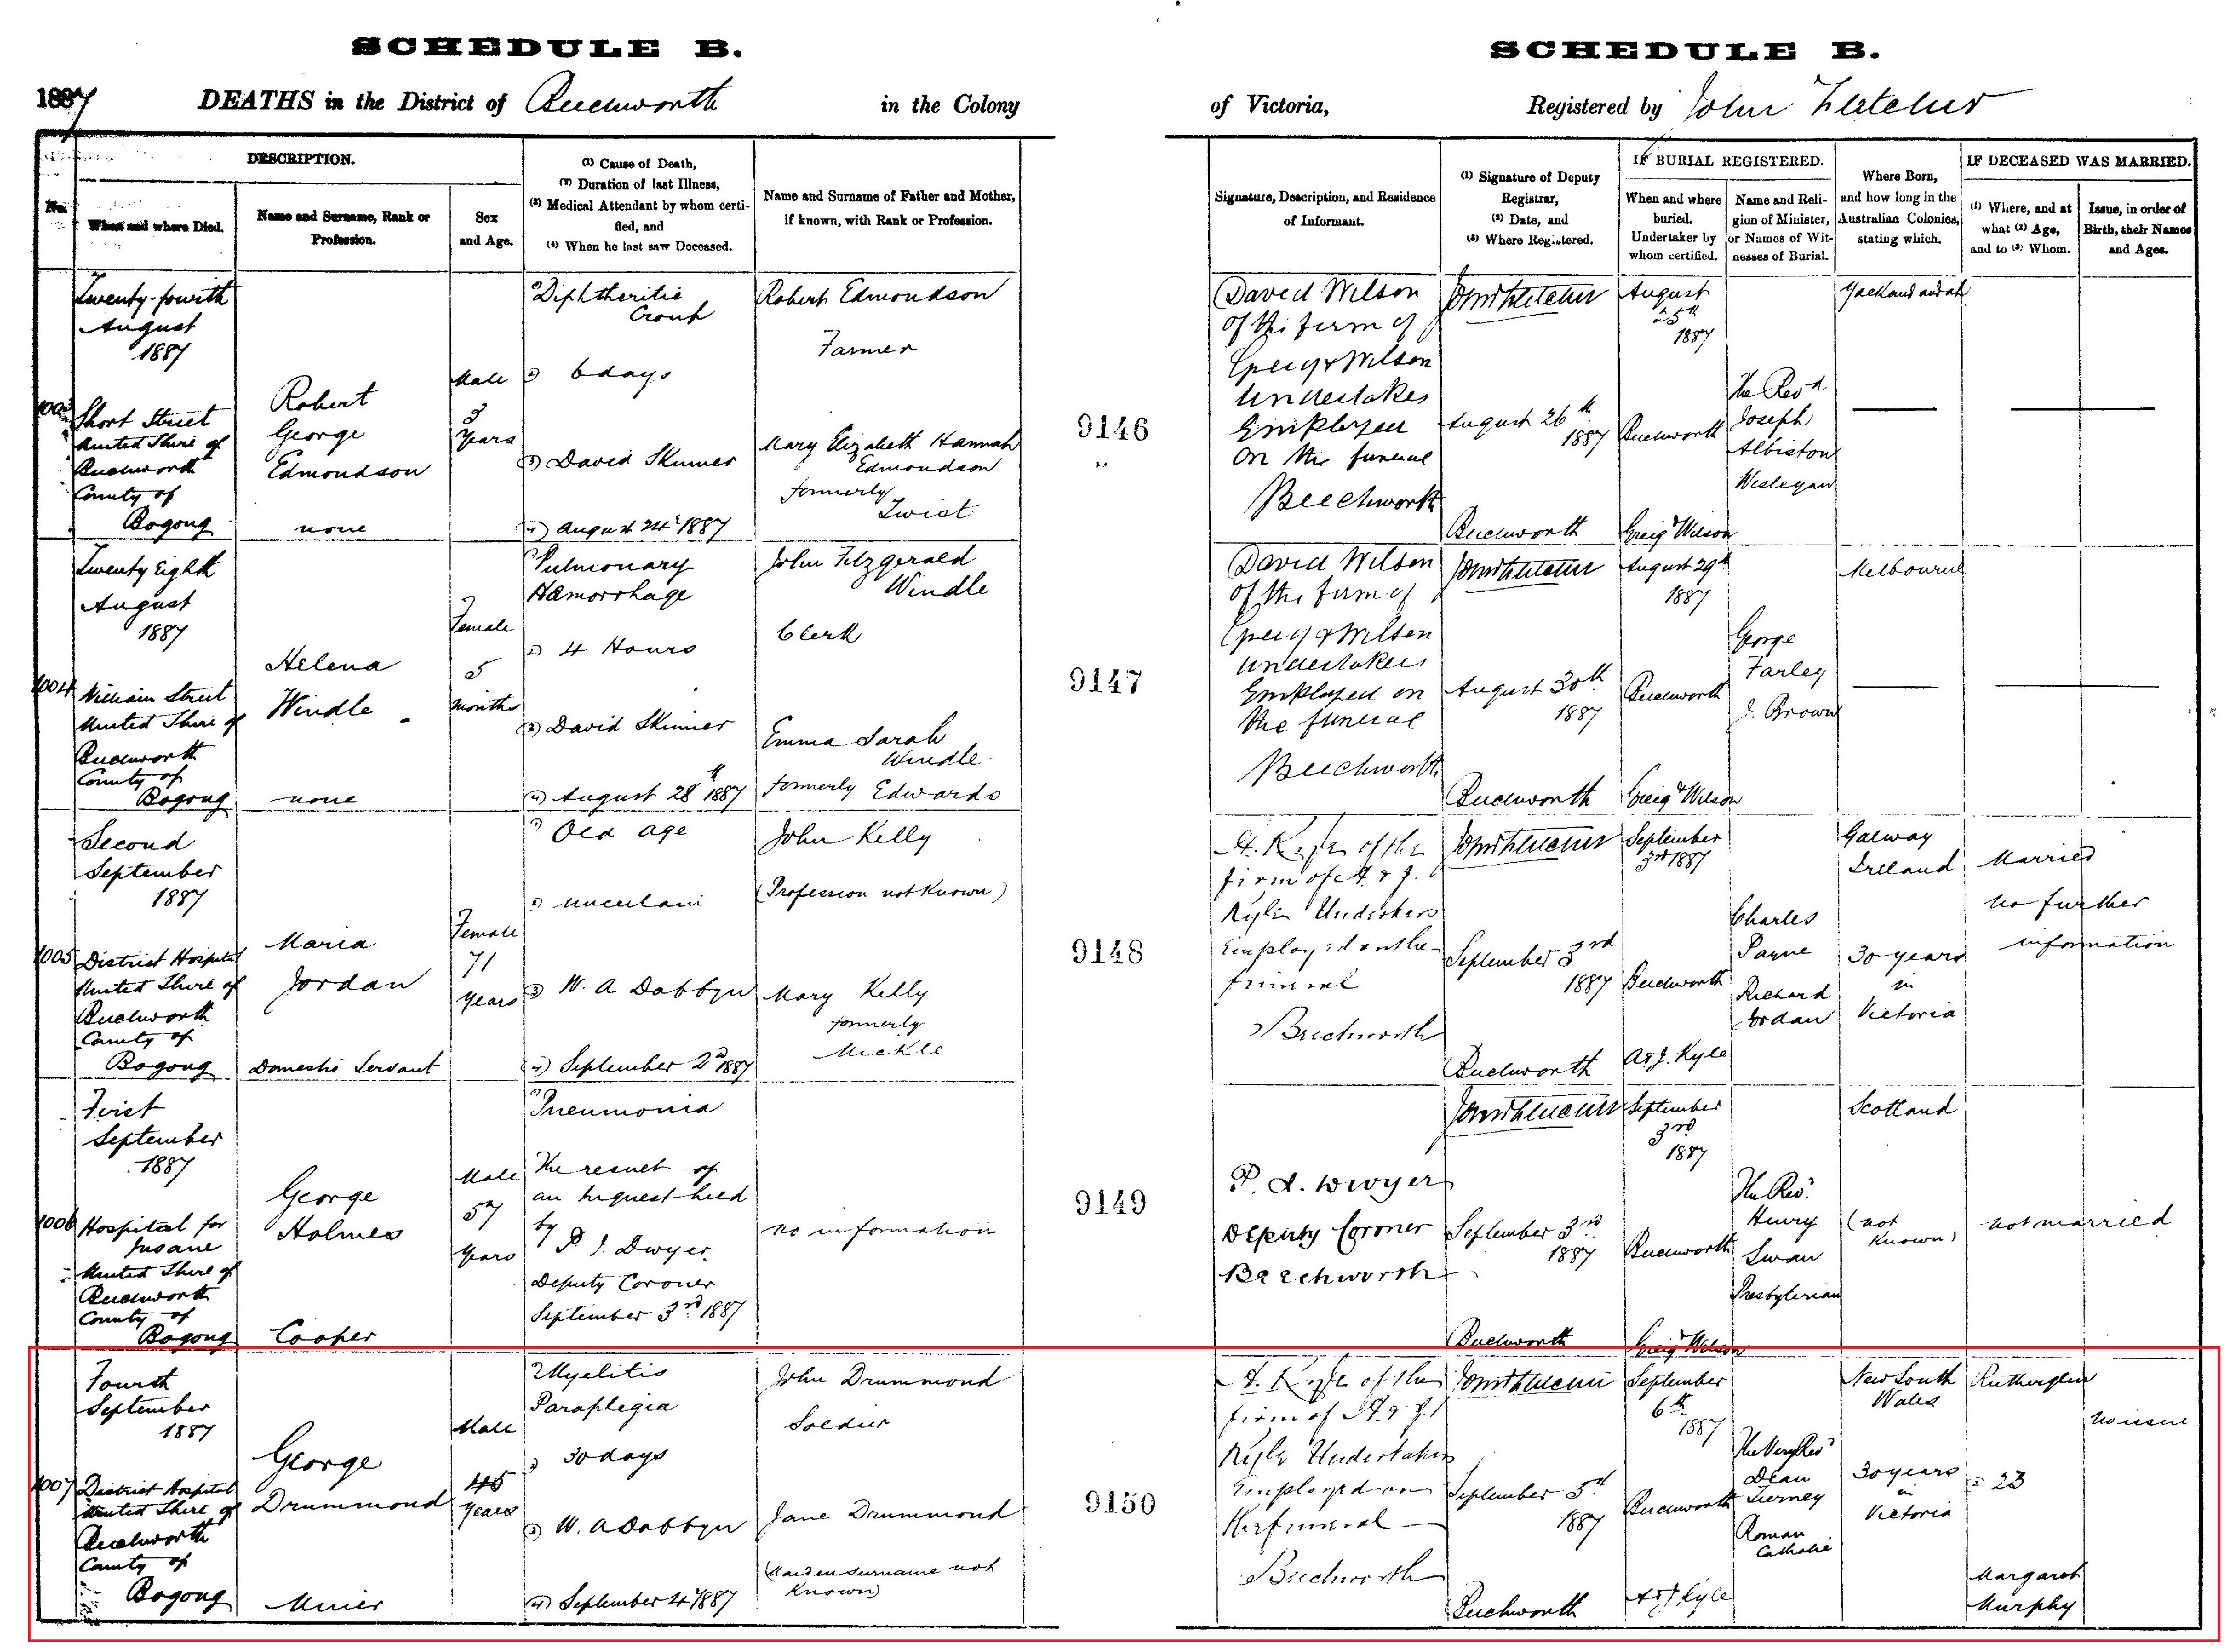 SCHEDULE B.
1887 DEATHS in the District of Beechworth in the Colony
DESCRIPTION.
No.
When and where Died.
Name and Surname, Rank or
Profession.
Sex
and Age.
(1) Cause of Death,
(2) Duration of last Illness,
(3) Medical Attendant by whom certi-
fied, and
(4) When he last saw Deceased.
Name and Surname of Father and Mother,
if known, with Rank or Profession.
Twenty-fourth
August
1887
Short Street
United Shire of
Beechworth
County of
Bogong
Robert
George
Edmondson
none
Male
3
Years
Diphtheritic
Croup
6 days
(3) David Skinner
(4) August 24th 1887
Robert Edmondson
Farmer
Mary Elizabeth Hannah
Edmondson
formerly
Twist
1004
Twenty Eighth
August
1887
William Street
United Shire of
Beechworth
County of
Bogong
Helena
Windle
none
Female
5
months
Pulmonary
Hæmorrhage
4 Hours
(3) David Skinner
(4) August 28th 1887
John Fitzgerald
Windle
Clerk
Emma Sarah
Windle
formerly Edwards
1005
Second
September
1887
District Hospital
United Shire of
Beechworth
County of
Bogong
Maria
Jordan
Domestic Servant
Female
71
Years
Old age
uncertain
(3) W. A Dobbyn
(4) September 2nd 1887
John Kelly
(Profession not Known)
Mary Kelly
formerly
Mickle
1006
First
September
1887
Hospital for
Insane
United Shire of
Beechworth
County of
Bogong
George
Holmes
Cooper
Male
57
Years
Pneumonia
The result of
an Inquest held
by
P. J. Dwyer
Deputy Coroner
September 3rd 1887
no information
1007
Fourth
September
1887
District Hospital
United Shire of
Beechworth
County of
Bogong
George
Drummond
Miner
Male
45
Years
Myelitis
Paraplegia
30 days
(3) W. A Dobbyn
(4) September 4th 1887
John Drummond
Soldier
Jane Drummond
(Maiden surname not
Known)
SCHEDULE B.
of Victoria, Registered by John Fletcher
Signature, Description, and Residence
of Informant.
(1) Signature of Deputy
Registrar,
(2) Date, and
(3) Where Registered.
IF BURIAL REGISTERED.
When and where
buried.
Undertaker by
whom certified.
Name and Reli-
gion of Minister,
or Names of Wit-
nesses of Burial.
Where Born,
and how long in the
Australian Colonies,
stating which.
IF DECEASED WAS MARRIED.
(1) Where, and at
what (2) Age,
and to (3) Whom.
Issue, in order of
Birth, their Names
and Ages.
9146
David Wilson
of the firm of
Greig & Wilson
Undertakers
Employed
on the funeral
Beechworth
John Fletcher
August 26th
1887
Beechworth
August
25th
1887
Beechworth
Greig & Wilson
The Revd
Joseph
Albiston
Wesleyan
Yackandandah
9147
David Wilson
of the firm of
Greig & Wilson
undertakers
Employed on
the funeral
Beechworth
John Fletcher
August 30th
1887
Beechworth
August 29th
1887
Beechworth
Greig & Wilson
George
Farley
J. Brown
Melbourne
9148
A. Kyle of the
firm of A & J.
Kyle Undertakers
Employed on the
funeral
Beechworth
John Fletcher
September 3rd
1887
Beechworth
September
3rd 1887
Beechworth
A & J. Kyle
Charles
Payne
Richard
Jordan
Galway
Ireland
30 years
in
Victoria
Married
no further
information
9149
P. J. Dwyer
Deputy Coroner
Beechworth
John Fletcher
September 3rd
1887
Beechworth
September
3rd
1887
Beechworth
Greig & Wilson
The Revd
Henry
Swan
Presbyterian
Scotland
(not
Known)
not married
9150
A. Kyle of the
firm of A & J
Kyle Undertakers
Employed on
the funeral
Beechworth
John Fletcher
September 5th
1887
Beechworth
September
6th
1887
Beechworth
A & J Kyle
The Very Revd
Dean
Tierney
Roman
Catholic
New South
Wales
30 years
in
Victoria
Rutherglen
23
Margaret
Murphy
no issue